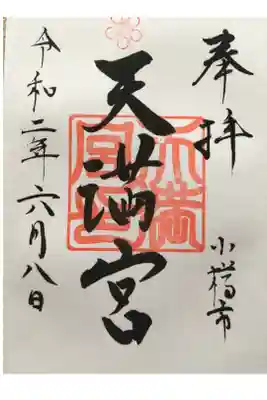 奉拝
小樽市
天満宮
天満宮
令和二年六月八日